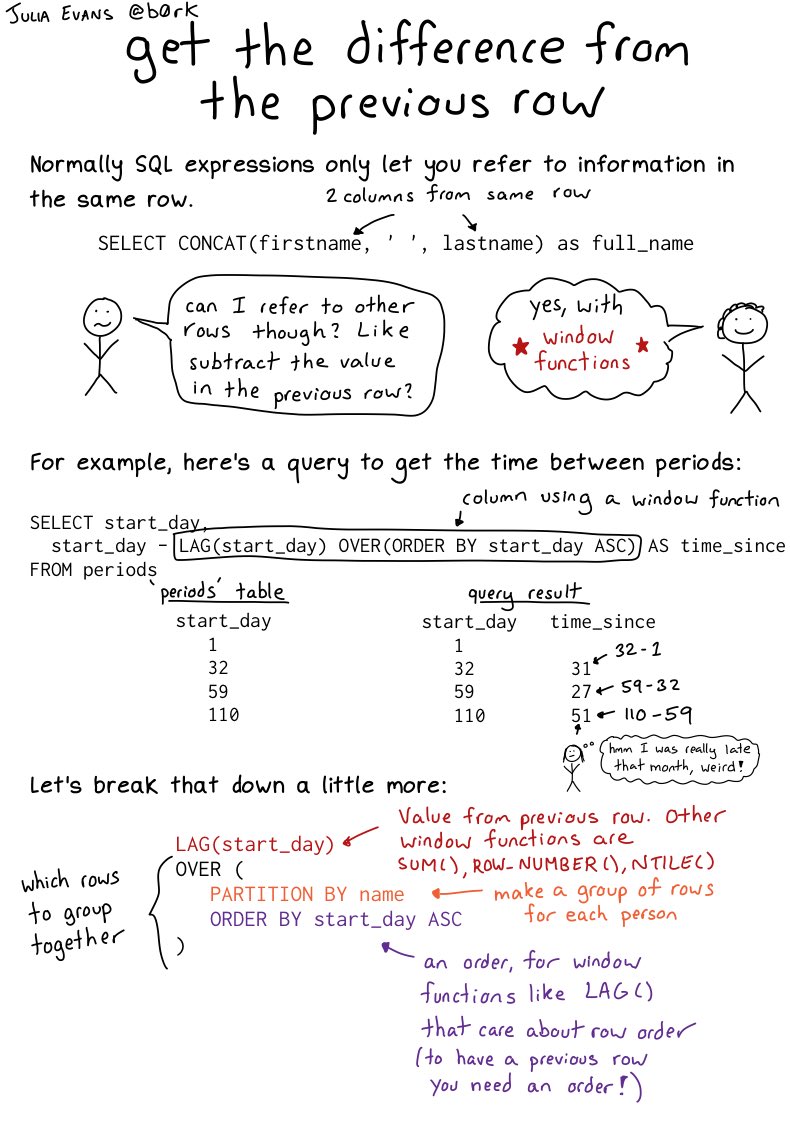 JULIA EVANS @b0rk
get the difference from
the previous row
Normally SQL expressions only let you refer to information in
the same row.
2 columns from same row
SELECT CONCAT(firstname, ' ', lastname) as full_name
can I refer to other
rows though? Like
subtract the value
in the previous row?
yes, with
★ window ★
functions
For example, here's a query to get the time between periods:
column using a window function
SELECT start_day,
start_day - LAG(start_day) OVER(ORDER BY start_day ASC) AS time_since
FROM periods
'periods' table
start_day
1
32
59
110
query result
start_day time_since
1
32 31 32-1
59 27 59-32
110 51 110-59
hmm I was really late
that month, weird!
Let's break that down a little more:
which rows
to group
together
LAG(start_day)
OVER (
PARTITION BY name
ORDER BY start_day ASC
)
Value from previous row. Other
window functions are
SUM(), ROW_NUMBER(), NTILE()
make a group of rows
for each person
an order, for window
functions like LAG()
that care about row order
(to have a previous row
you need an order!)